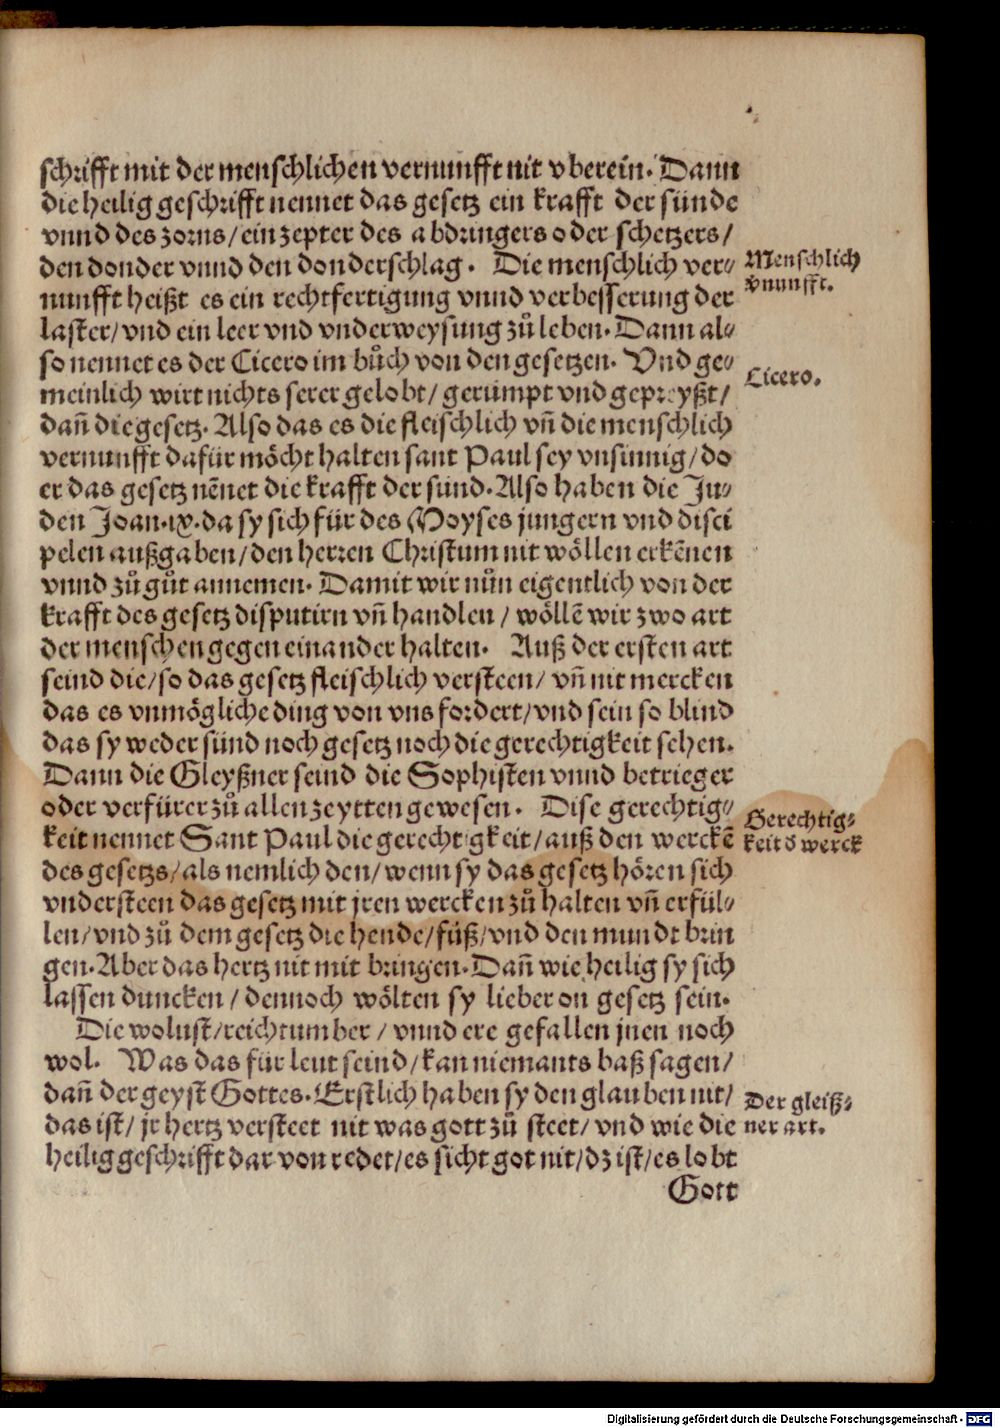 schrifft mit der menschlichen vernunfft nit vberein. Dann
die heilig geschrifft nennet das gesetz ein krafft der sünde
vnnd des zorns/ ein zepter des abdringers oder schetzers/
den donder vnnd den donderschlag. Die menschlich ver⸗
nunfft heißt es ein rechtfertigung vnnd verbesserung der
laster/ vnd ein leer vnd vnderweysung zů leben. Dann al⸗
so nennet es der Cicero im bůch von den gesetzen. Vnd ge⸗
meinlich wirt nichts serer gelobt/ gerümpt vnd gepreyßt/
dañ die gesetz. Also das es die fleischlich vñ die menschlich
vernunfft dafür möcht halten sant Paul sey vnsinnig/ do
er das gesetz nēnet die krafft der sünd. Also haben die Ju⸗
den Joan. ix. da sy sich für des Moyses jungern vnd disci
pelen außgaben/ den herren Christum nit wöllen erkēnen
vnnd zů gůt annemen. Damit wir nůn eigentlich von der
krafft des gesetz disputirn vñ handlen/ wöllē wir zwo art
der menschen gegen einander halten. Auß der ersten art
seind die/ so das gesetz fleischlich versteen/ vñ nit mercken
das es vnmögliche ding von vns fordert/ vnd sein so blind
das sy weder sünd noch gesetz noch die gerechtigkeit sehen.
Dann die Gleyßner seind die Sophisten vnnd betrieger
oder verfürer zů allen zeytten gewesen. Dise gerechtig⸗
keit nennet Sant Paul die gerechtigkeit/ auß den werckē
des gesetzs/ als nemlich den/ wenn sy das gesetz hören sich
vndersteen das gesetz mit jren wercken zů halten vñ erfül⸗
len/ vnd zů dem gesetz die hende/ füß/ vnd den mundt brin
gen. Aber das hertz nit mit bringen. Dañ wie heilig sy sich
lassen duncken/ dennoch wölten sy lieber on gesetz sein.
Die wolust/ reichtumber/ vnnd ere gefallen jnen noch
wol. Was das für leut seind/ kan niemants baß sagen/
dañ der geyst Gottes. Erstlich haben sy den glauben nit/
das ist/ jr hertz versteet nit was gott zů steet/ vnd wie die
heilig geschrifft dar von redet/ es sicht got nit/ dz ist/ es lobt
Gott
Menschlich
vnunfft.
Cicero.
Gerechtig⸗
keit d werck
Der gleiß⸗
ner art.
Digitalisierung gefördert durch die Deutsche Forschungsgemeinschaft - DFG